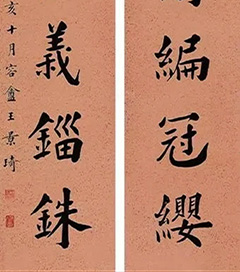 編冠纓
義錙銖
亥十月容盦王景琦